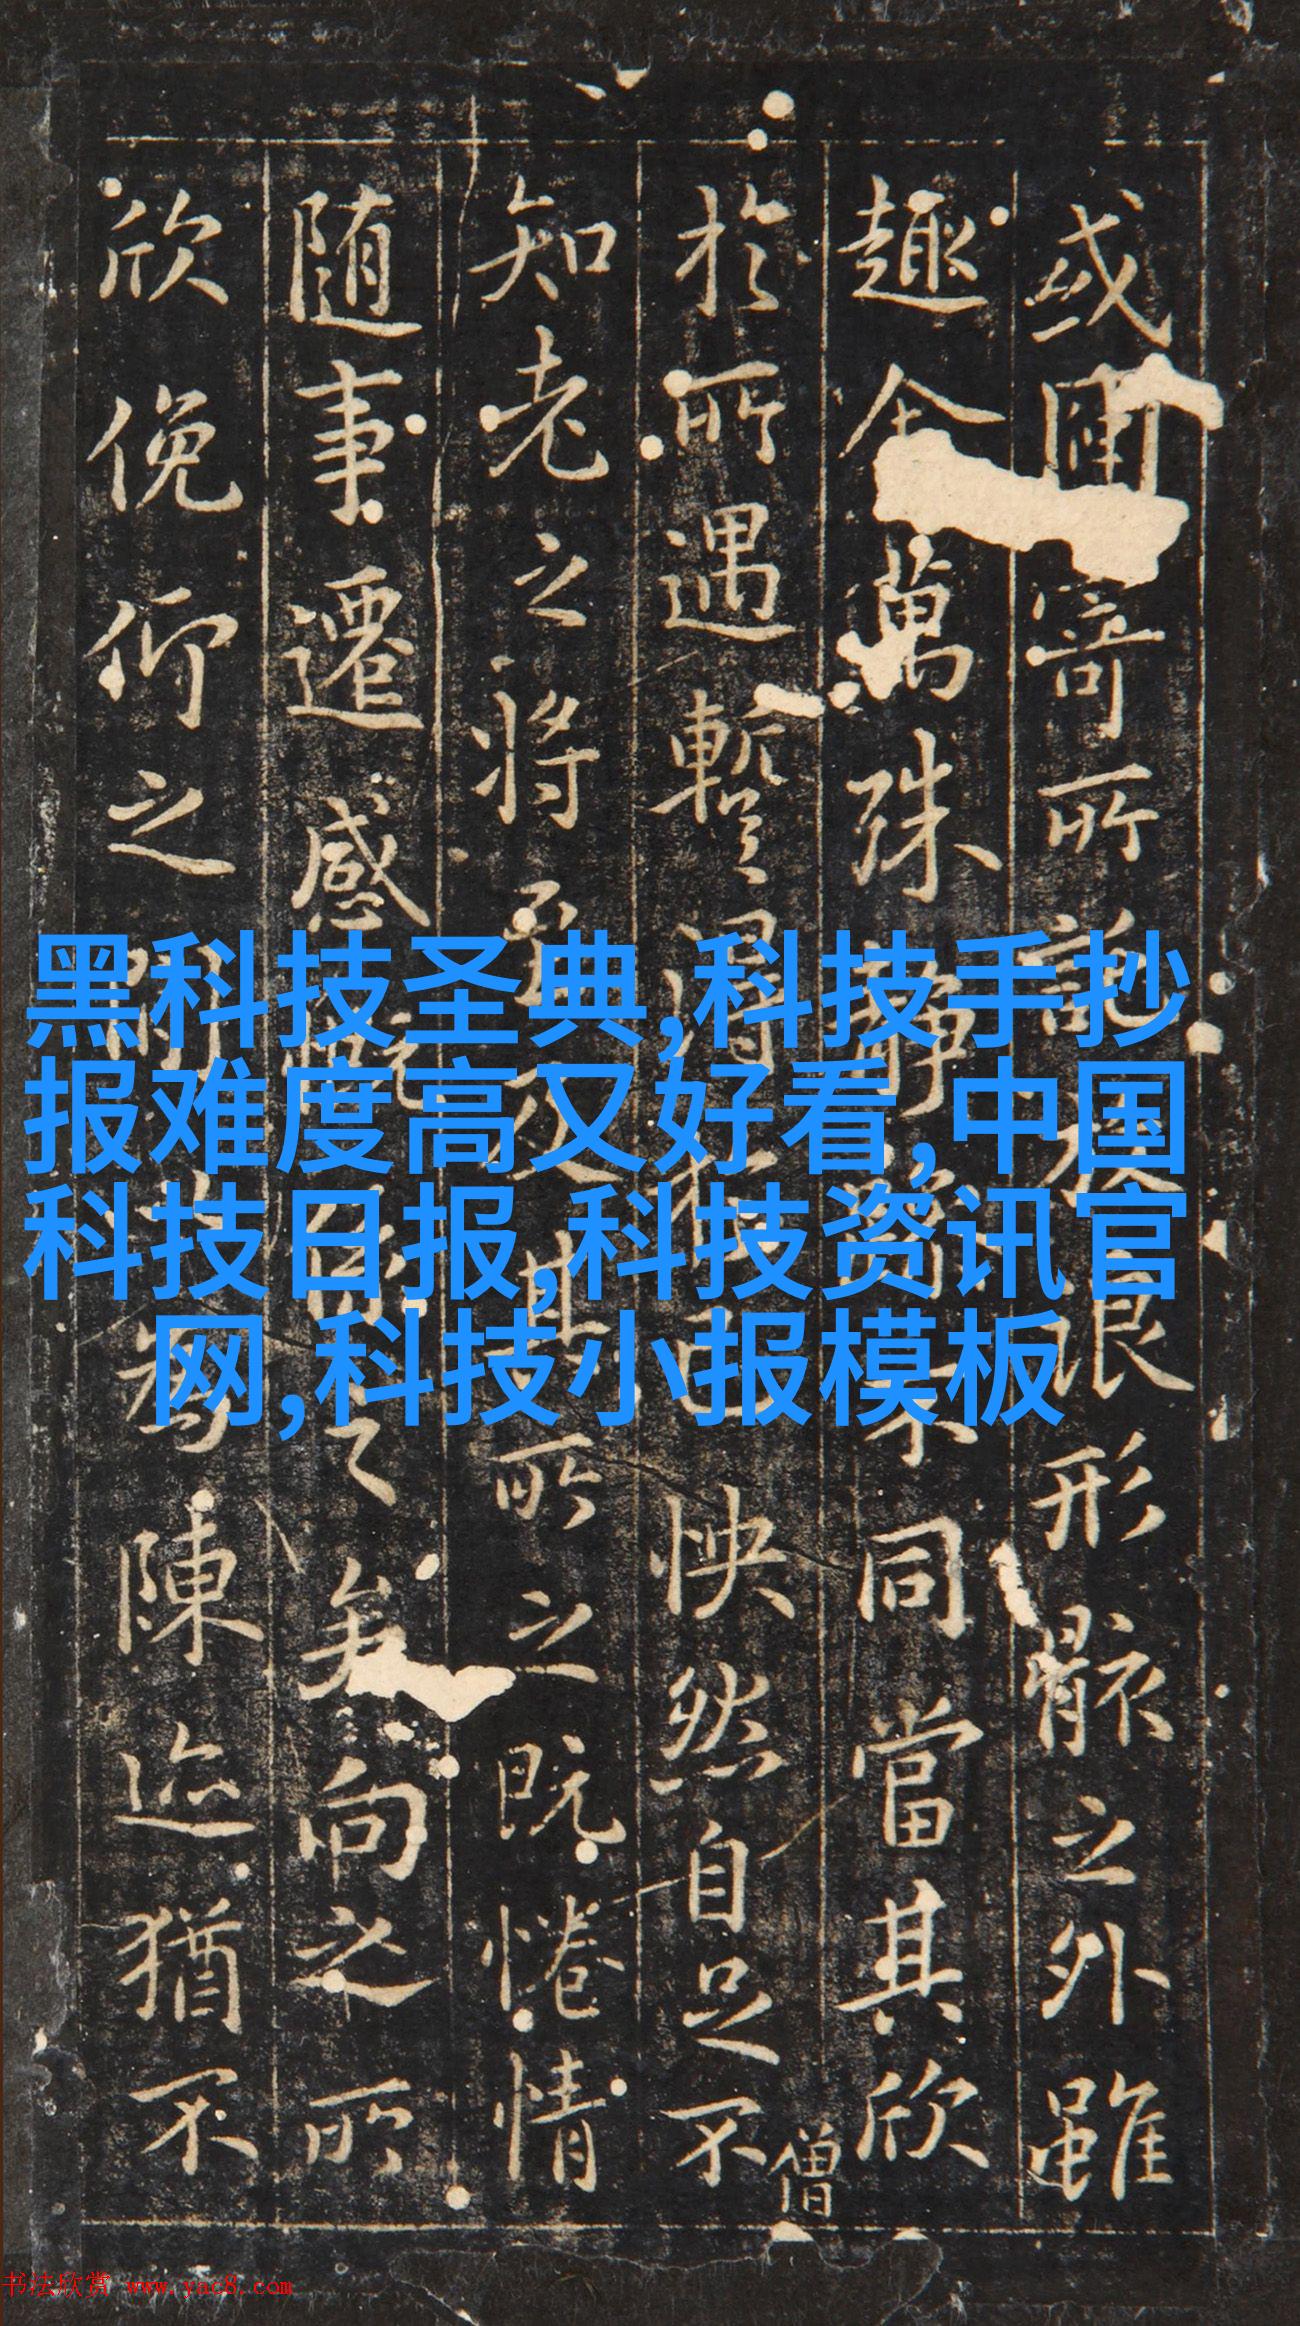 或因寄所託放浪形骸之外雖
趣舍萬殊靜不同當其欣
於所遇蹔得於己怏然自足不
僧
知老之將至及其所之既惓情
随事遷感慨係之矣向之所
欣俛仰之閒以為陳迹猶不
黑科技圣典,科技手抄
报难度高又好看,中国
科技日报,科技资讯官
网,科技小报模板
书法欣赏 www.yac8.com